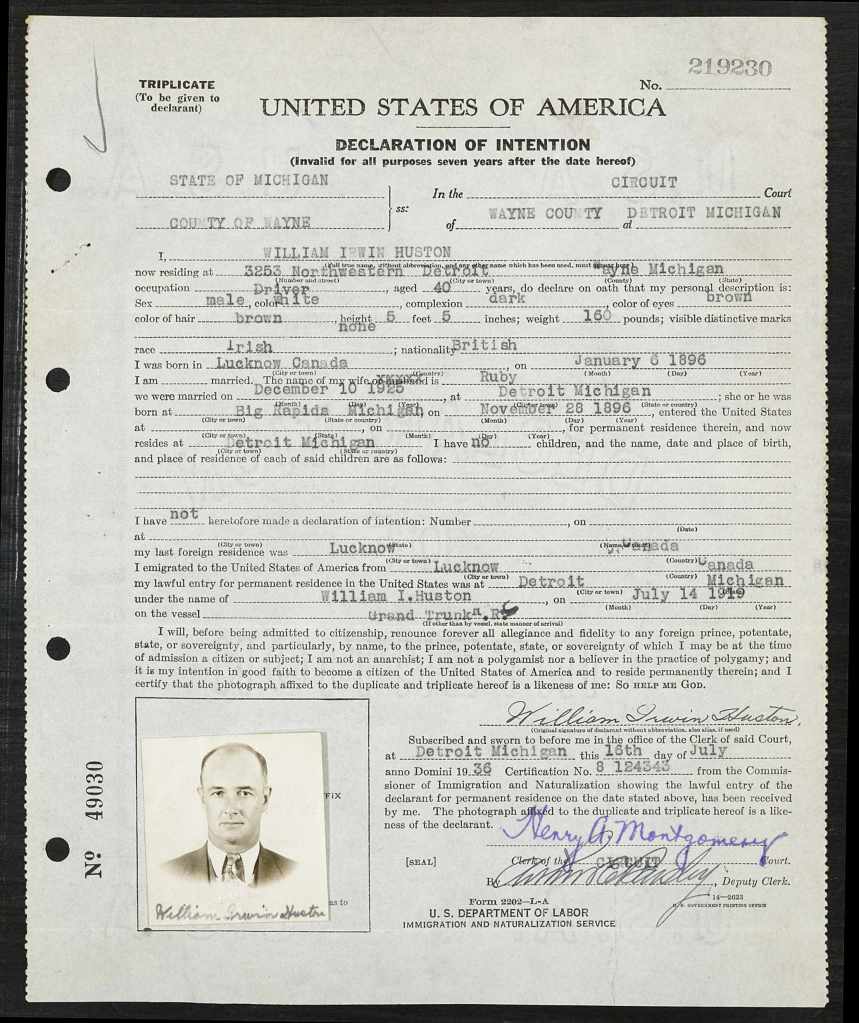 219230
TRIPLICATE
(To be given to
declarant)
No.
UNITED STATES OF AMERICA
DECLARATION OF INTENTION
(Invalid for all purposes seven years after the date hereof)
STATE OF MICHIGAN
In the CIRCUIT Court
ss:
COUNTY OF WAYNE
of WAYNE COUNTY at DETROIT MICHIGAN
I, WILLIAM IRWIN HUSTON
(Full true name, without abbreviation, and any other name which has been used, must appear here)
now residing at 3253 Northwestern Detroit Wayne Michigan
(Number and street) (City or town) (County) (State)
occupation Driver, aged 40 years, do declare on oath that my personal description is:
Sex male, color white, complexion dark, color of eyes brown
color of hair brown, height 5 feet 5 inches; weight 160 pounds; visible distinctive marks
none
race Irish; nationality British
I was born in Lucknow Canada, on January 6 1896
(City or town) (Country) (Month) (Day) (Year)
I am married. The name of my wife or husband is Ruby
we were married on December 10 1925, at Detroit Michigan; she or he was
(Month) (Day) (Year) (City or town) (State or country)
born at Big Rapids Michigan, on November 28 1896, entered the United States
(City or town) (State or country) (Month) (Day) (Year)
at , on , for permanent residence therein, and now
(City or town) (State) (Month) (Day) (Year)
resides at Detroit Michigan I have no children, and the name, date and place of birth,
(City or town) (State or country)
and place of residence of each of said children are as follows:
I have not heretofore made a declaration of intention: Number , on
(Date)
at
(City or town) (State) (Name of court)
my last foreign residence was Lucknow, Canada
(City or town) (Country)
I emigrated to the United States of America from Lucknow Canada
(City or town) (Country)
my lawful entry for permanent residence in the United States was at Detroit Michigan
(City or town) (State)
under the name of William I.Huston, on July 14 1919
(Month) (Day) (Year)
on the vessel Grand Trunk R.R.
(If other than by vessel, state manner of arrival)
I will, before being admitted to citizenship, renounce forever all allegiance and fidelity to any foreign prince, potentate,
state, or sovereignty, and particularly, by name, to the prince, potentate, state, or sovereignty of which I may be at the time
of admission a citizen or subject; I am not an anarchist; I am not a polygamist nor a believer in the practice of polygamy; and
it is my intention in good faith to become a citizen of the United States of America and to reside permanently therein; and I
certify that the photograph affixed to the duplicate and triplicate hereof is a likeness of me: SO HELP ME GOD.
William Irwin Huston.
(Original signature of declarant without abbreviation, also alias, if used)
Subscribed and sworn to before me in the office of the Clerk of said Court,
at Detroit Michigan this 16th day of July
anno Domini 19 36 Certification No. 8 124343 from the Commis-
sioner of Immigration and Naturalization showing the lawful entry of the
declarant for permanent residence on the date stated above, has been received
by me. The photograph affixed to the duplicate and triplicate hereof is a like-
ness of the declarant.
Henry A. Montgomery
[SEAL] Clerk of the CIRCUIT Court.
By , Deputy Clerk.
Form 2202-L-A
14-2623
U. S. GOVERNMENT PRINTING OFFICE
U. S. DEPARTMENT OF LABOR
IMMIGRATION AND NATURALIZATION SERVICE
FIX
as to
William Irwin Huston
No 49030